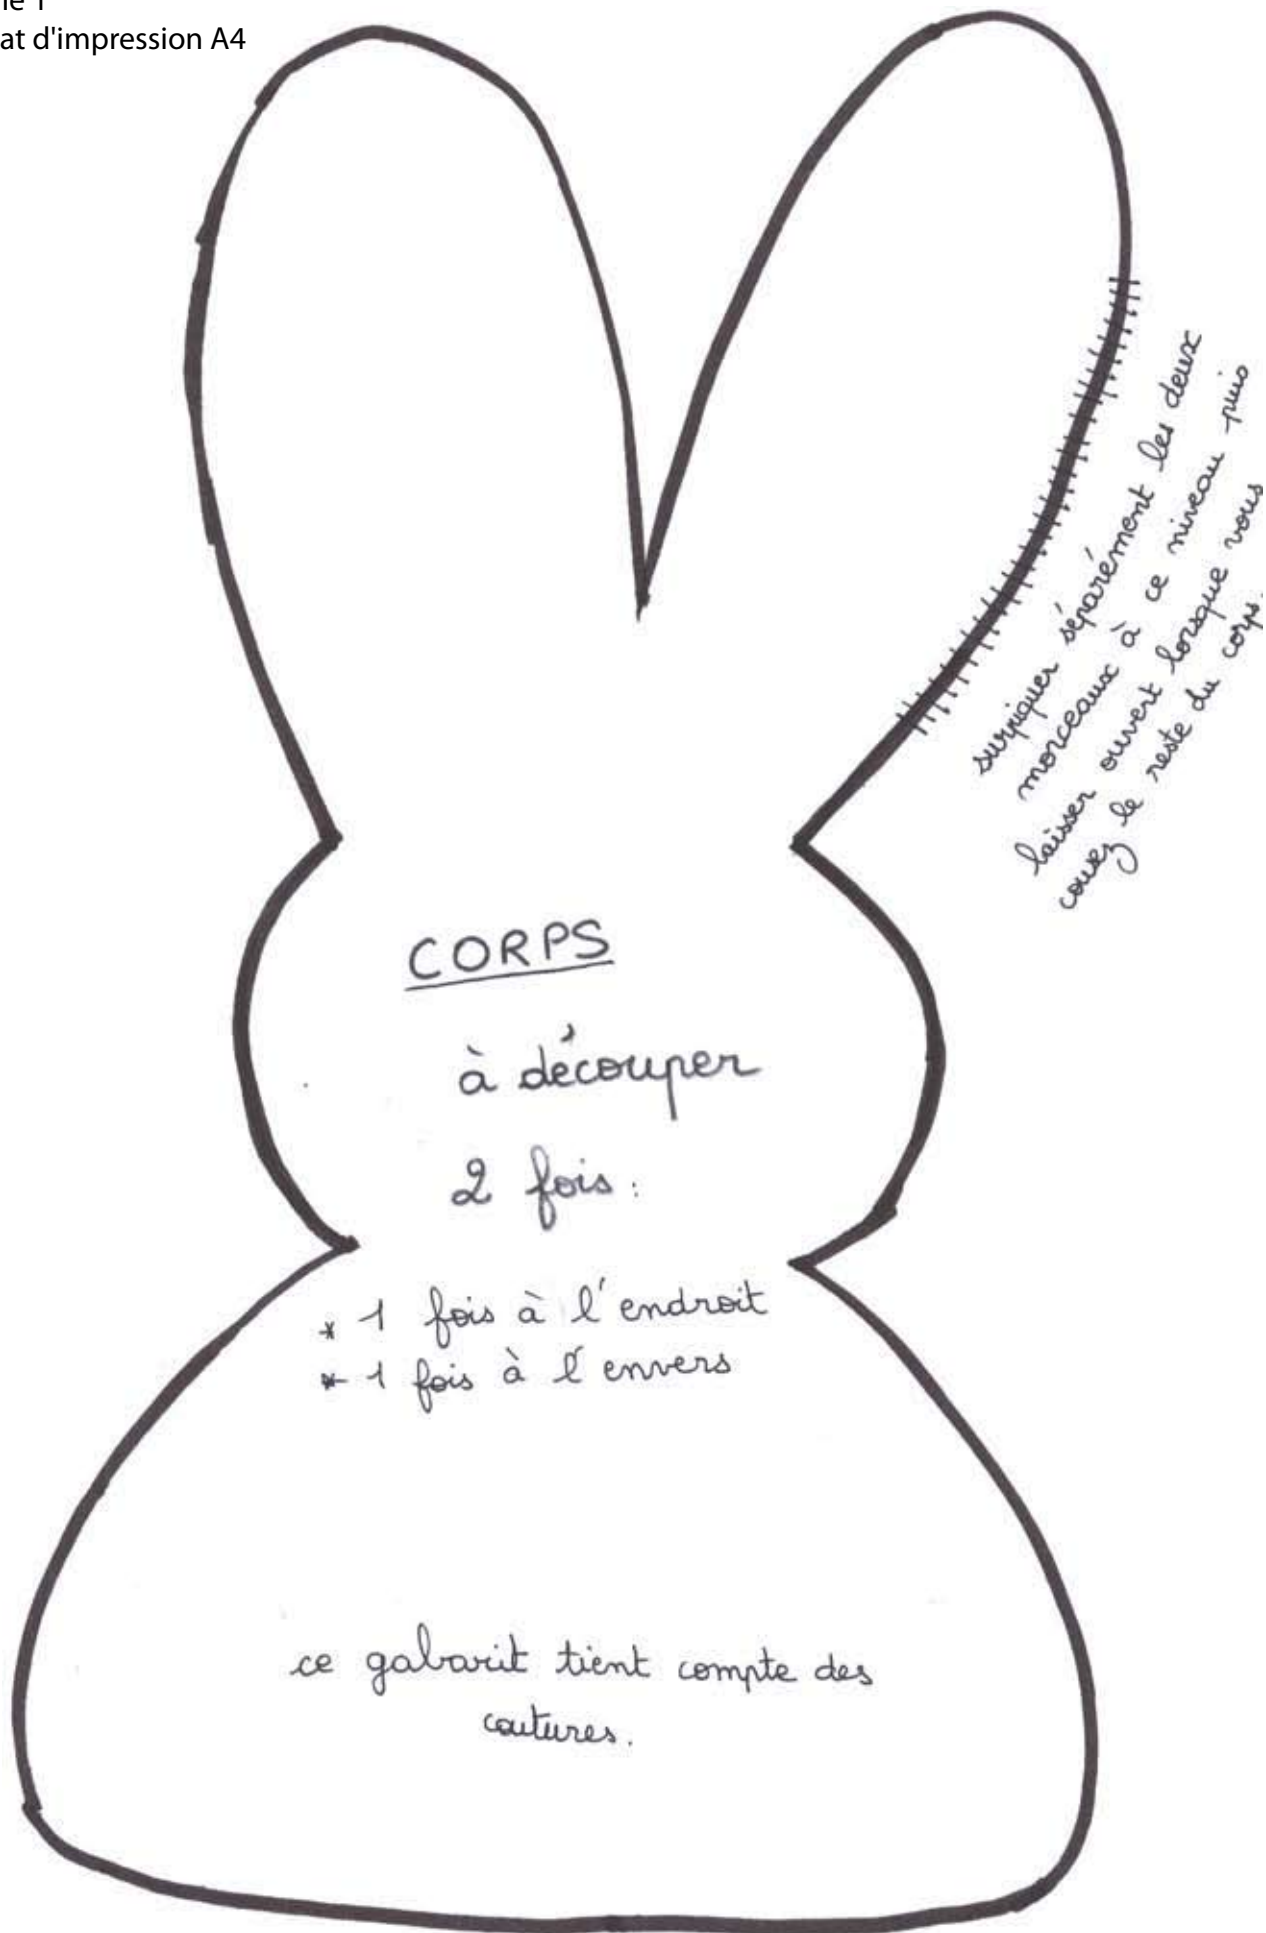 at d'impression A4
surpiquer séparément les deux
morceaux à ce niveau puis
laisser ouvert lorsque vous
cousez le reste du corps.
CORPS
à découper
2 fois :
* 1 fois à l'endroit
* 1 fois à l'envers
ce gabarit tient compte des
coutures.